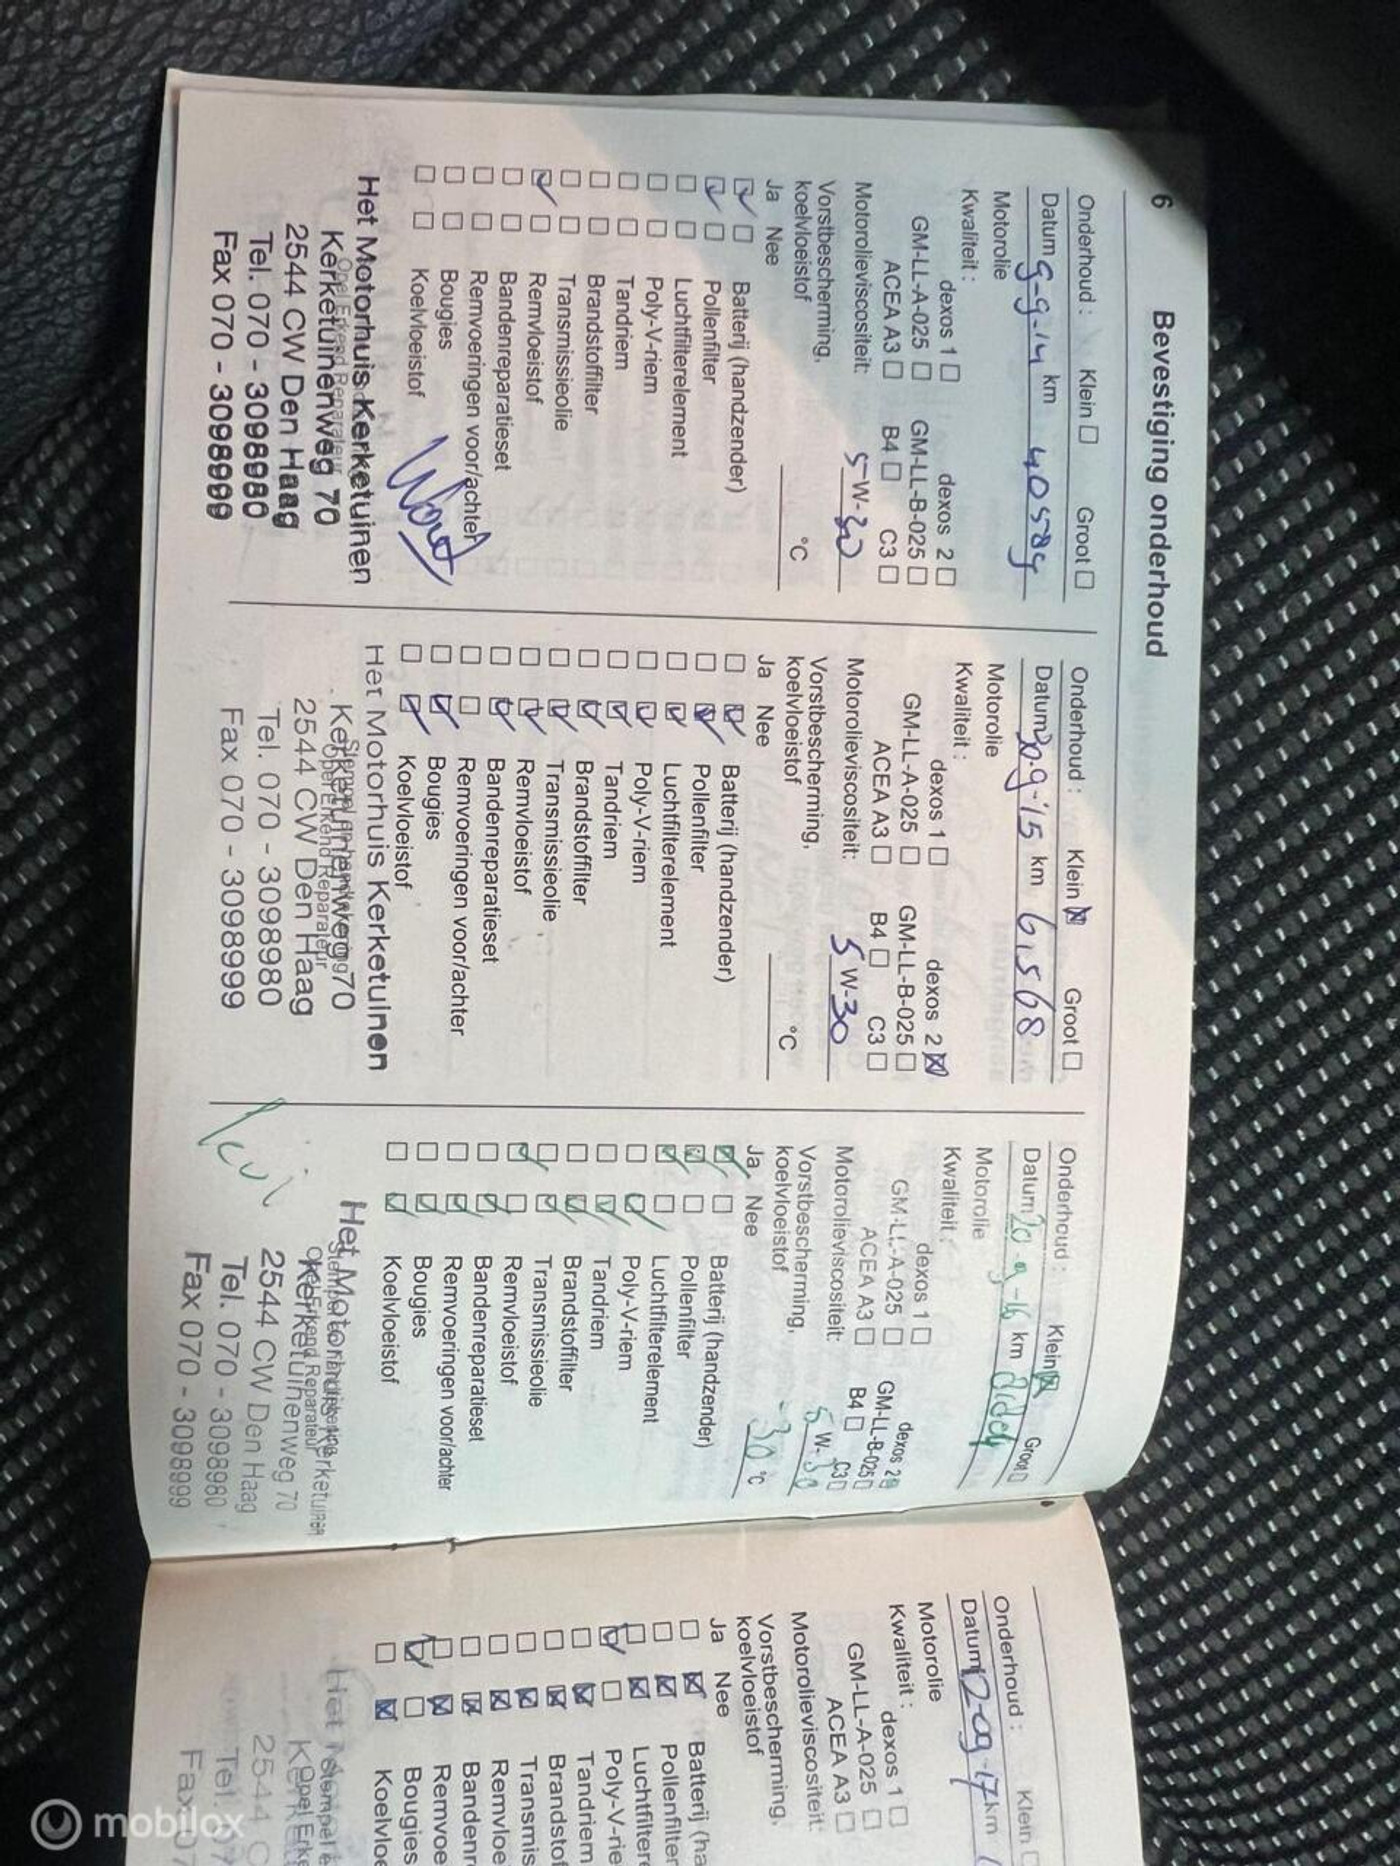 6 Bevestiging onderhoud
Onderhoud : Klein □ Groot □
Datum 9-9-14 km 40589
Motorolie
Kwaliteit : dexos 1 □ dexos 2 □
GM-LL-A-025 □ GM-LL-B-025 □
ACEA A3 □ B4 □ C3 □
Motorolieviscositeit: 5-W-30
Vorstbescherming,
koelvloeistof °C
Ja Nee
Batterij (handzender)
Pollenfilter
Luchtfilterelement
Poly-V-riem
Tandriem
Brandstoffilter
Transmissieolie
Remvloeistof
Bandenreparatieset
Remvoeringen voor/achter
Bougies
Koelvloeistof
Het Motorhuis Kerketuinen
Opel Erkend Reparateur
Kerketuinenweg 70
2544 CW Den Haag
Tel. 070 - 3098980
Fax 070 - 3098999
Onderhoud : Klein ☒ Groot □
Datum 30-9-'15 km 61568
Motorolie
Kwaliteit : dexos 1 □ dexos 2 ☒
GM-LL-A-025 □ GM-LL-B-025 □
ACEA A3 □ B4 □ C3 □
Motorolieviscositeit: 5 W-30
Vorstbescherming,
koelvloeistof °C
Ja Nee
Batterij (handzender)
Pollenfilter
Luchtfilterelement
Poly-V-riem
Tandriem
Brandstoffilter
Transmissieolie
Remvloeistof
Bandenreparatieset
Remvoeringen voor/achter
Bougies
Koelvloeistof
Het Motorhuis Kerketuinen
Opel Erkend Reparateur
Kerketuinenweg 70
2544 CW Den Haag
Tel. 070 - 3098980
Fax 070 - 3098999
Onderhoud : Klein ☒ Groot □
Datum 20-9-16 km
Motorolie
Kwaliteit : dexos 1 □ dexos 2 ☒
GM-LL-A-025 □ GM-LL-B-025 □
ACEA A3 □ B4 □ C3 □
Motorolieviscositeit: 5 W-30
Vorstbescherming,
koelvloeistof -30 °C
Ja Nee
Batterij (handzender)
Pollenfilter
Luchtfilterelement
Poly-V-riem
Tandriem
Brandstoffilter
Transmissieolie
Remvloeistof
Bandenreparatieset
Remvoeringen voor/achter
Bougies
Koelvloeistof
Het Motorhuis Kerketuinen
Opel Erkend Reparateur
Kerketuinenweg 70
2544 CW Den Haag
Tel. 070 - 3098980
Fax 070 - 3098999
Onderhoud : Klein □
Datum 12-09-17 km
Motorolie
Kwaliteit : dexos 1 □
GM-LL-A-025 □
ACEA A3 □
Motorolieviscositeit:
Vorstbescherming,
koelvloeistof
Ja Nee
Batterij (ha
Pollenfilter
Luchtfiltere
Poly-V-rie
Tandriem
Brandstof
Transmis
Remvloe
Bandenr
Remvoe
Bougies
Koelvloe
Opel Erke
2544 C
Tel. 07
Fax 07
mobilox